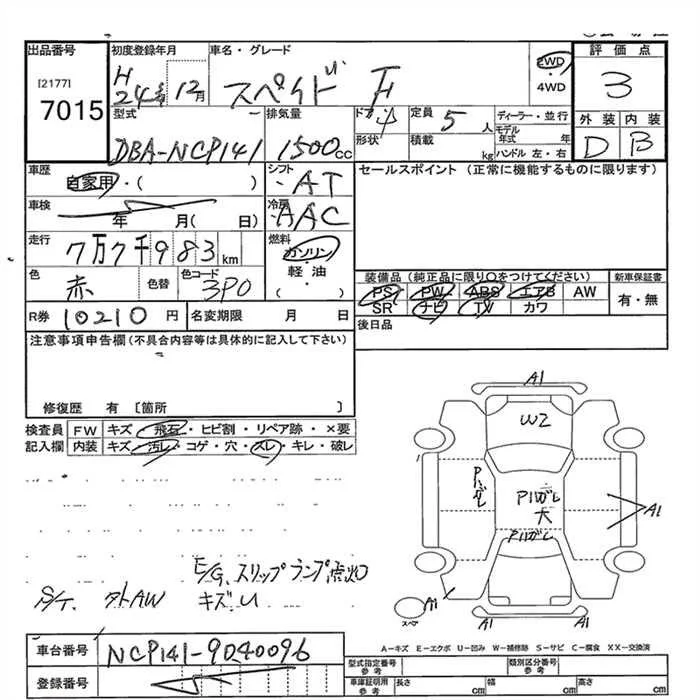 出品番号 初度登録年月 車名・グレード 評価点
[2177] 7015 H 24年 12月 スペイド F 2WD ・4WD 3
型式 排気量 ドア 定員 ディーラー・並行 外装 内装
DBA-NCP141 1500cc 4 5人 モデル年式 年 D B
形状 積載 kg ハンドル 左・右
車歴 自家用・( ) シフト ・AT セールスポイント(正常に機能するものに限ります)
車検 年 月( 日) 冷房 ・AAC
走行 7万7千983km 燃料 ガソリン ・軽油 ・( )
色 赤 色替 色コード 3P0 装備品(純正品に限り○をつけてください) 新車保証書
PS PW ABS エアB AW 有・無
SR ナビ TV カワ
R券 10210円 名変期限 月 日 後日品
注意事項申告欄(不具合内容等は具体的に記入して下さい)
修復歴 有 〔箇所 〕
検査員 FW キズ・飛石・ヒビ割・リペア跡・×要
記入欄 内装 キズ・汚レ・コゲ・穴・スレ・キレ・破レ
A1
W2
Pハガレ
P1ガレ
大
P1ガレ
A1
E/G、スリップランプ点灯
S/T. タトAW キズU
スペア
A1
A1
A-キズ E-エクボ U-凹み W-補修跡 S-サビ C-腐食 XX-交換済
車台番号 NCP141-9040096 型式指定番号参考 類別区分番号参考
登録番号 車庫証明用参考 長さ cm 幅 cm 高さ cm